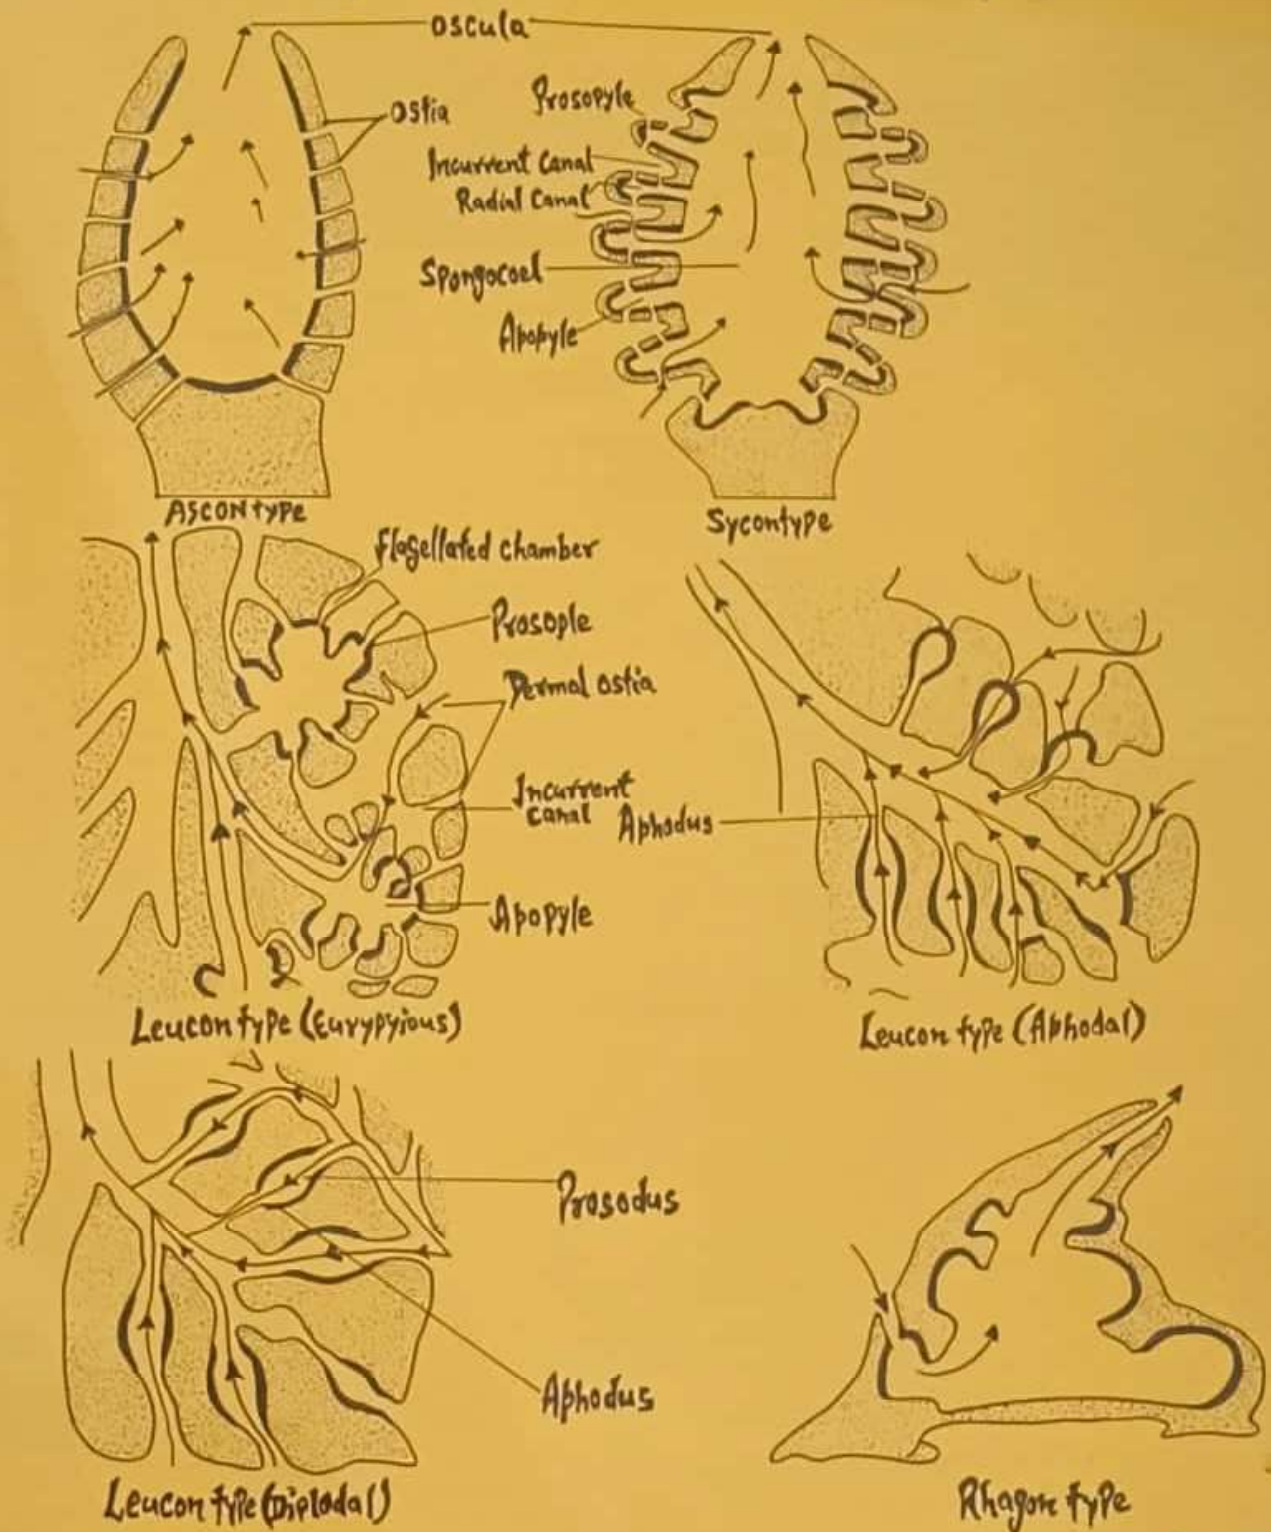 oscula
ostia
Prosopyle
Incurrent Canal
Radial Canal
Spongocoel
Apopyle
ASCON type
Sycontype
Flagellated chamber
Prosople
Dermal ostia
Incurrent
canal
Aphodus
Apopyle
Leucon type (Eurypyious)
Leucon type (Aphodal)
Prosodus
Aphodus
Leucon type (Diplodal)
Rhagon type